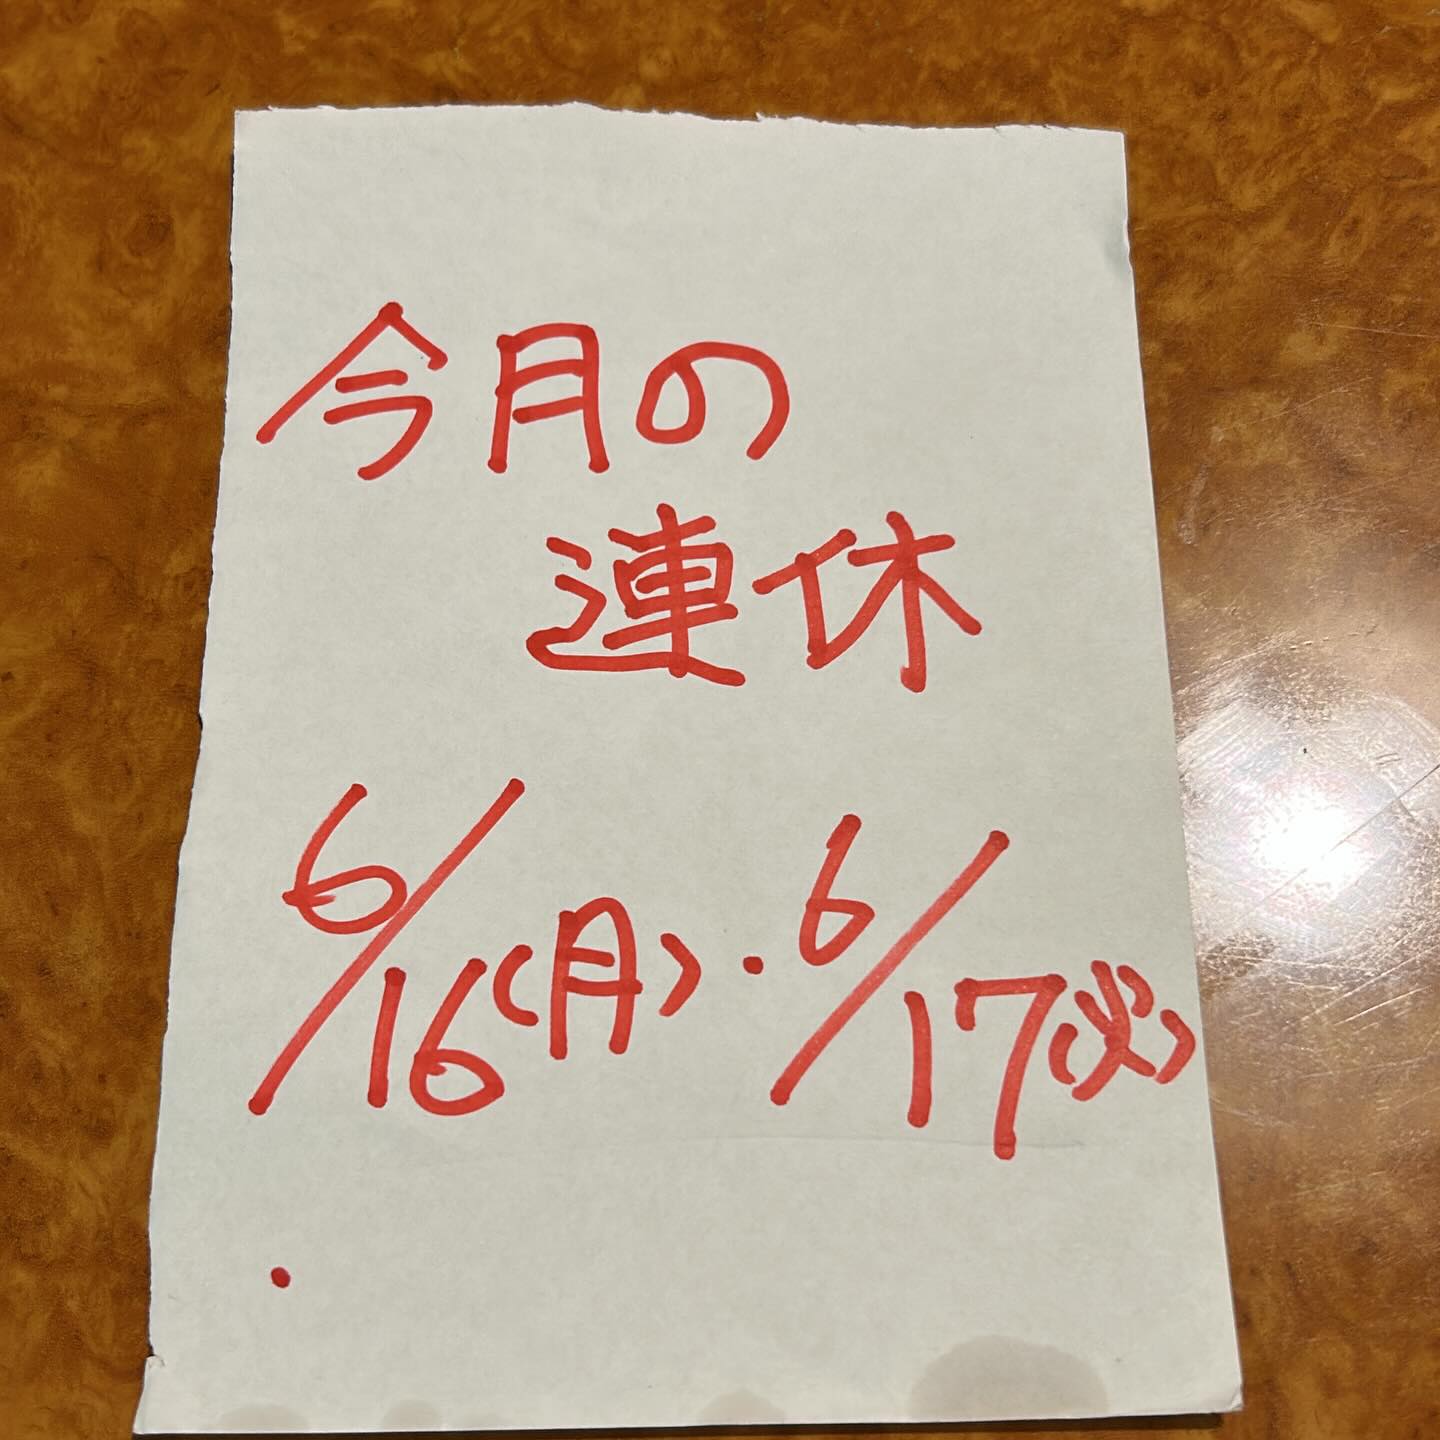 今月の
連休
6/16(月)・6/17(火)